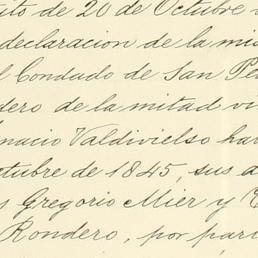 ito de 20 de Octubre
declaracion de la mis
l Condado de San Pe
dero de la mitad vi
nacio Valdivielso ha
ctubre de 1845, sus a
s Gregorio Mier y T
Rondero, por par